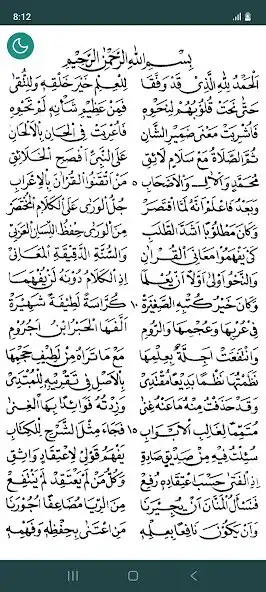 8:12
بِسْمِ اللهِ الرَّحْمٰنِ الرَّحِيْمِ
الْحَمْدُ لِلّٰهِ الَّذِي قَدْ وَفَّقَا لِلْعِلْمِ خَيْرَ خَلْقِهِ وَلِلتُّقَى
حَتَّى نَحَتْ قُلُوْبُهُمْ لِنَحْوِهِ فَمِنْ عَظِيْمِ شَأْنِهِ لَمْ تَحْوِهِ
فَأُشْرِبَتْ مَعْنَى ضَمِيْرِ الشَّانِ فَأَعْرَبَتْ فِي الْحَانِ بِالْأَلْحَانِ
ثُمَّ الصَّلَاةُ مَعَ سَلَامٍ لَائِقِ عَلَى النَّبِيِّ أَفْصَحِ الْخَلَائِقِ
مُحَمَّدٍ وَالْآلِ وَالْأَصْحَابِ ٥ مَنْ أَتْقَنُوا الْقُرْآنَ بِالْإِعْرَابِ
وَبَعْدُ فَاعْلَمْ أَنَّهُ لَمَّا اقْتَصَرْ جُلُّ الْوَرَى عَلَى الْكَلَامِ الْمُخْتَصَرْ
وَكَانَ مَطْلُوْبًا أَشَدَّ الطَّلَبِ مِنَ الْوَرَى حِفْظُ اللِّسَانِ الْعَرَبِيْ
كَيْ يَفْهَمُوا مَعَانِيَ الْقُرْآنِ وَالسُّنَّةِ الدَّقِيْقَةِ الْمَعَانِيْ
وَالنَّحْوُ أَوْلَى أَوَّلًا أَنْ يُعْلَمَا إِذِ الْكَلَامُ دُوْنَهُ لَنْ يُفْهَمَا
وَكَانَ خَيْرُ كُتْبِهِ الصَّغِيْرَةْ ١٠ كُرَّاسَةً لَطِيْفَةً شَهِيْرَةْ
فِي عُرْبِهَا وَعُجْمِهَا وَالرُّوْمِ أَلَّفَهَا الْحَبْرُ ابْنُ آجُرُّوْمِ
وَانْتَفَعَتْ أَجِلَّةٌ بِعِلْمِهَا مَعْ مَا تَرَاهُ مِنْ لَطِيْفِ حَجْمِهَا
نَظَمْتُهَا نَظْمًا بَدِيْعًا مُقْتَدِيْ بِالْأَصْلِ فِي تَقْرِيْبِهِ لِلْمُبْتَدِيْ
وَقَدْ حَذَفْتُ مِنْهُ مَا عَنْهُ غِنَى وَزِدْتُهُ فَوَائِدًا بِهَا الْغِنَى
مُتَمِّمًا لِغَالِبِ الْأَبْوَابِ ١٥ فَجَاءَ مِثْلَ الشَّرْحِ لِلْكِتَابِ
سُئِلْتُ فِيْهِ مِنْ صَدِيْقٍ صَادِقِ يَفْهَمُ قَوْلِيْ لِاعْتِقَادٍ وَاثِقِ
إِذِ الْفَتَى حَسْبَ اعْتِقَادِهِ رُفِعْ وَكُلُّ مَنْ لَمْ يَعْتَقِدْ لَمْ يَنْتَفِعْ
فَنَسْأَلُ الْمَنَّانَ أَنْ يُجِيْرَنَا مِنَ الرِّيَا مُضَاعِفًا أُجُوْرَنَا
وَأَنْ يَكُوْنَ نَافِعًا بِعِلْمِهِ مَنِ اعْتَنَى بِحِفْظِهِ وَفَهْمِهِ